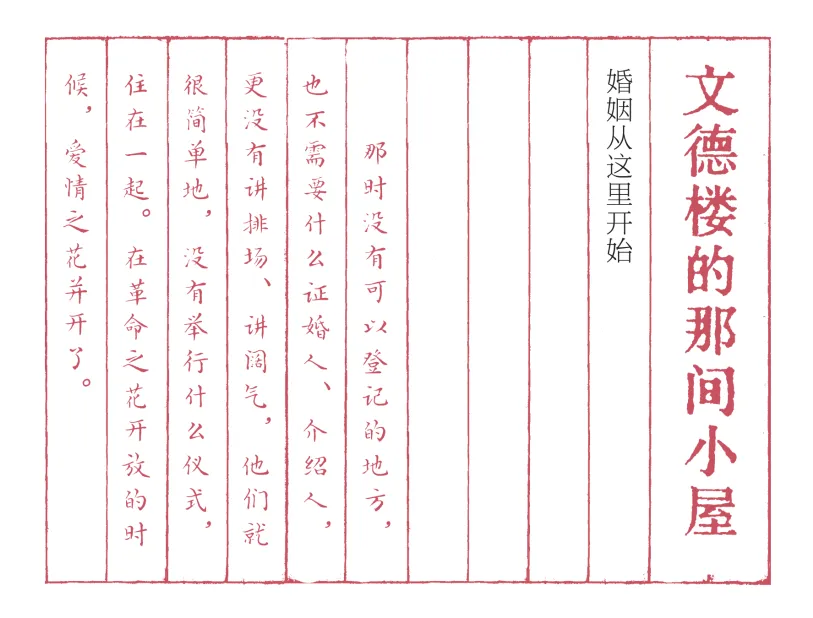 文德楼的那间小屋
婚姻从这里开始
那时没有可以登记的地方，
也不需要什么证婚人、介绍人，
更没有讲排场、讲阔气，他们就
很简单地，没有举行什么仪式，
住在一起。在革命之花开放的时
候，爱情之花并开了。